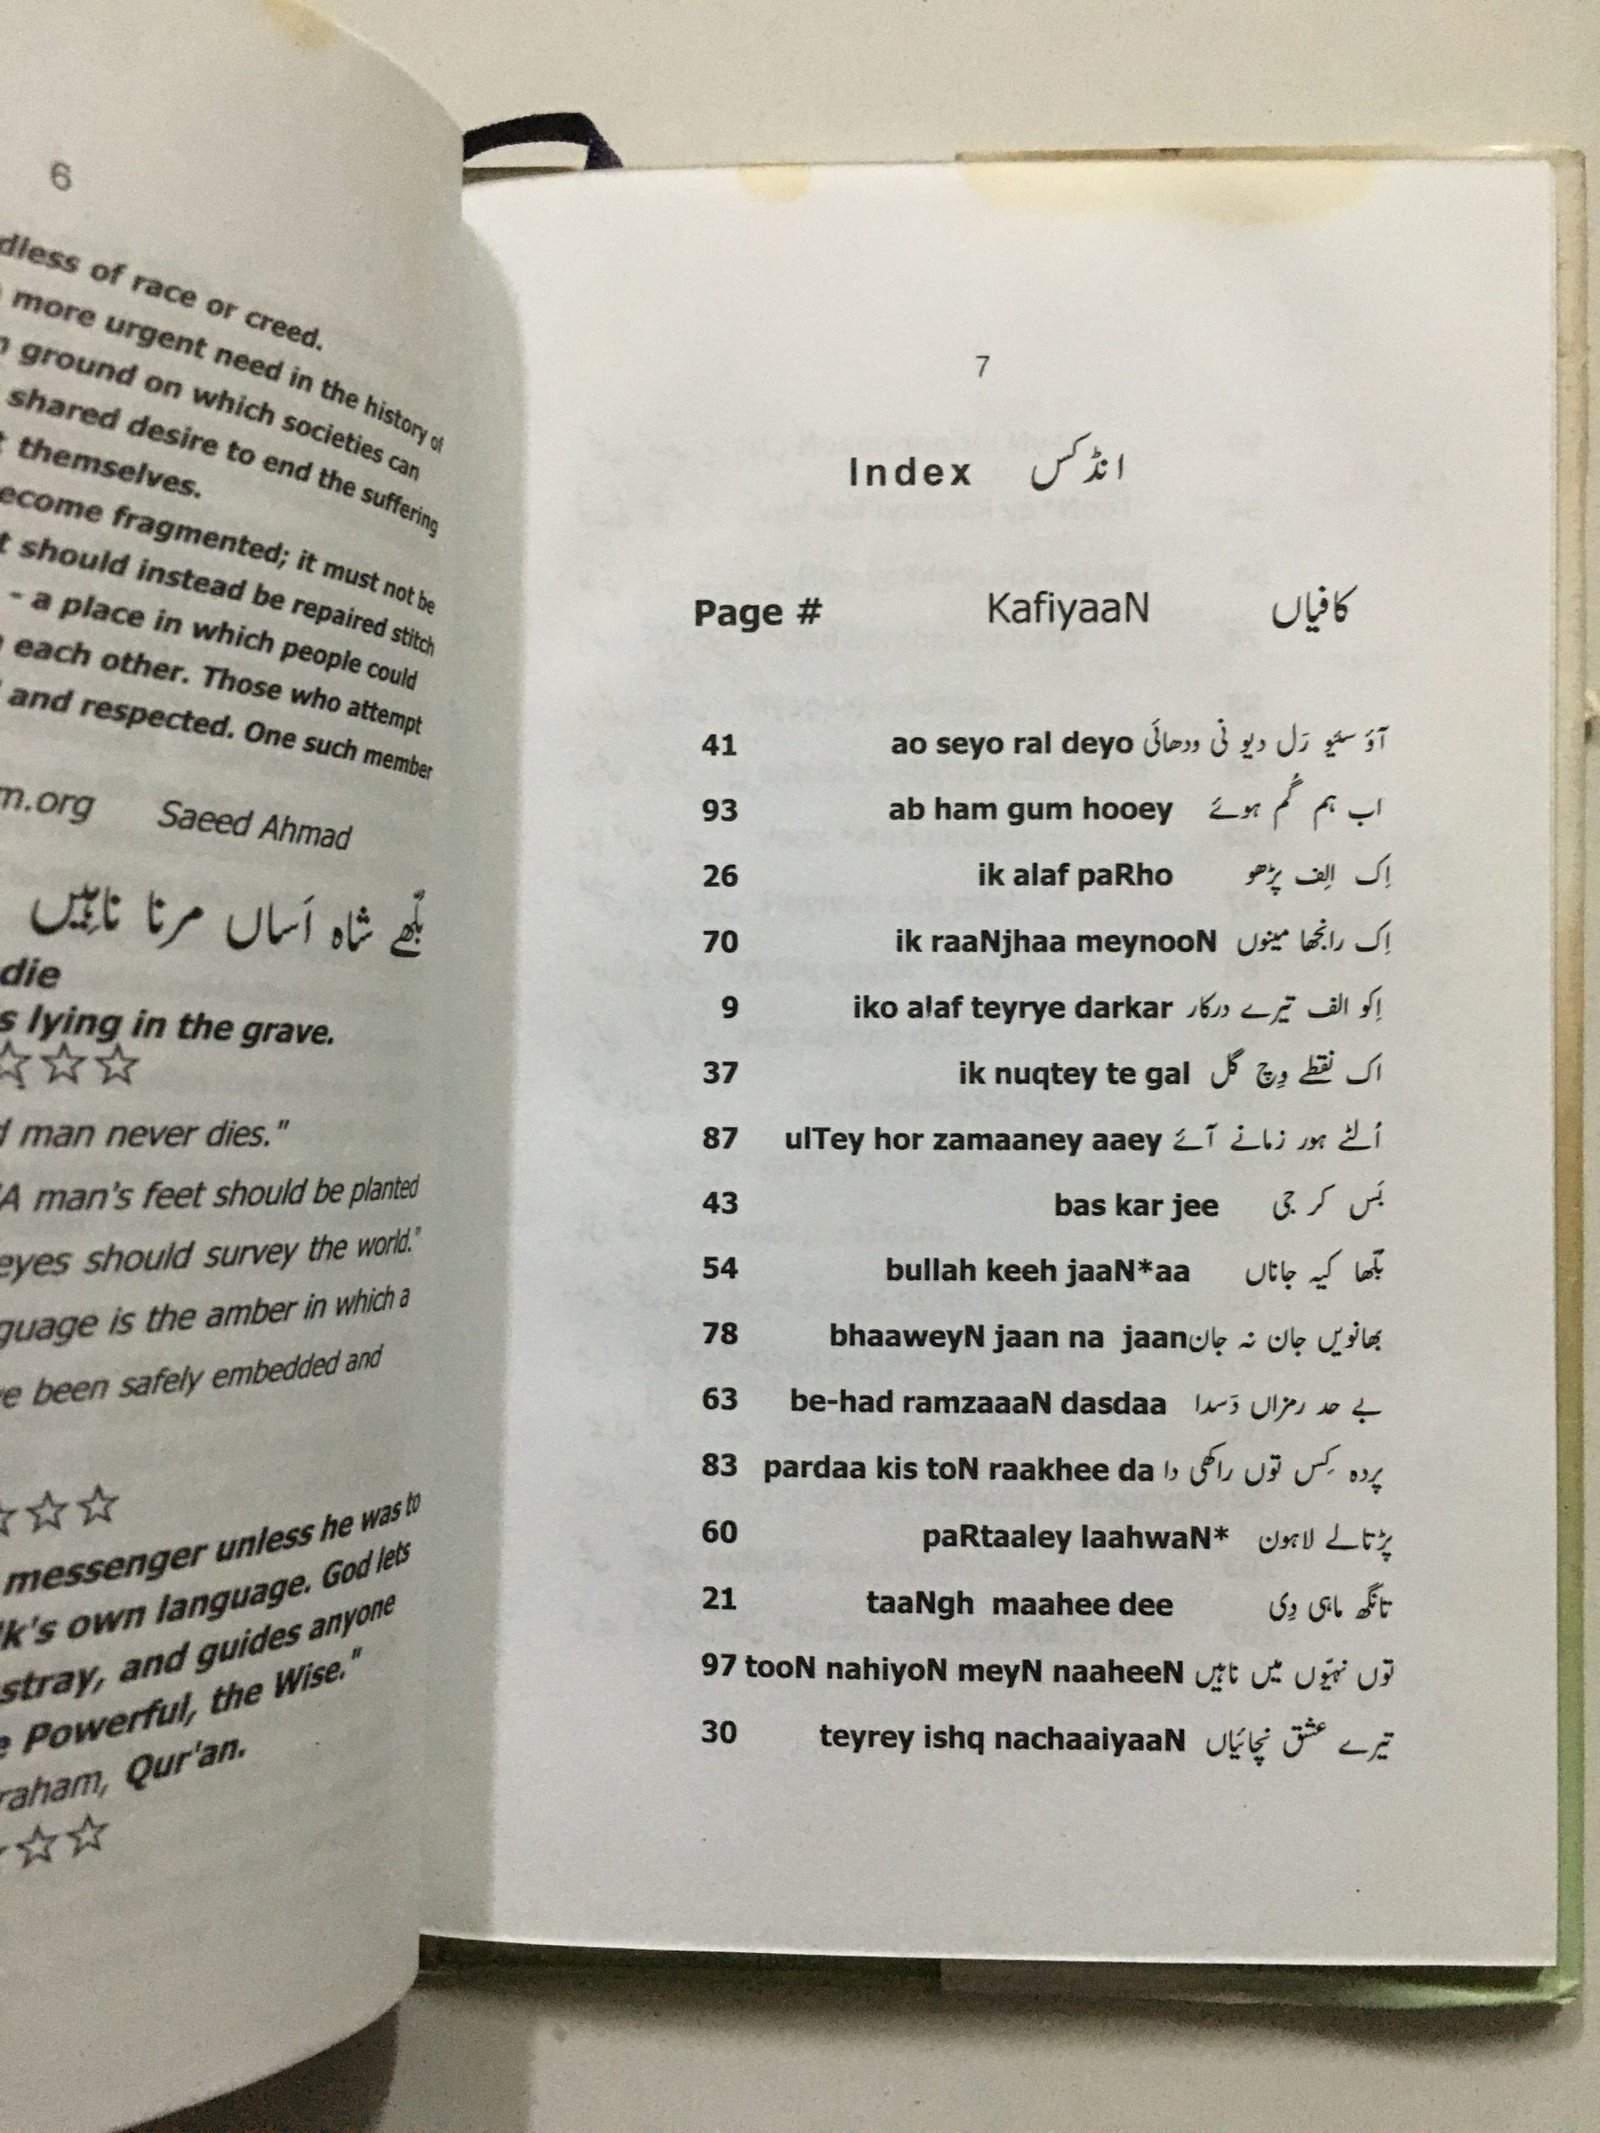 6
dless of race or creed.
more urgent need in the history of
ground on which societies can
shared desire to end the suffering
themselves.
ecome fragmented; it must not be
t should instead be repaired stitch
- a place in which people could
each other. Those who attempt
and respected. One such member
m.org Saeed Ahmad
بلّھے شاہ اَساں مرنا ناہِیں
die
s lying in the grave.
☆☆☆
d man never dies."
"A man's feet should be planted
eyes should survey the world."
guage is the amber in which a
ve been safely embedded and
☆☆☆
messenger unless he was to
lk's own language. God lets
stray, and guides anyone
e Powerful, the Wise."
raham, Qur'an.
☆☆
7
Index انڈکس
Page # KafiyaaN کافیاں
41 ao seyo ral deyo آؤ سئیو رَل دیو نی ودھائی
93 ab ham gum hooey اب ہم گُم ہوئے
26 ik alaf paRho اِک الِف پڑھو
70 ik raaNjhaa meynooN اِک رانجھا مینوں
9 iko alaf teyrye darkar اِکو الف تیرے درکار
37 ik nuqtey te gal اک نقطے وِچ گل
87 ulTey hor zamaaney aaey اُلٹے ہور زمانے آئے
43 bas kar jee بَس کر جی
54 bullah keeh jaaN*aa بلّھا کیہ جاناں
78 bhaaweyN jaan na jaan بھانویں جان نہ جان
63 be-had ramzaaaN dasdaa بے حد رمزاں دَسدا
83 pardaa kis toN raakhee da پردہ کِس توں راکھی دا
60 paRtaaley laahwaN* پڑتالے لاہون
21 taaNgh maahee dee تانگھ ماہی دِی
97 tooN nahiyoN meyN naaheeN توں نہیّوں میں ناہیں
30 teyrey ishq nachaaiyaaN تیرے عشق نچائیاں